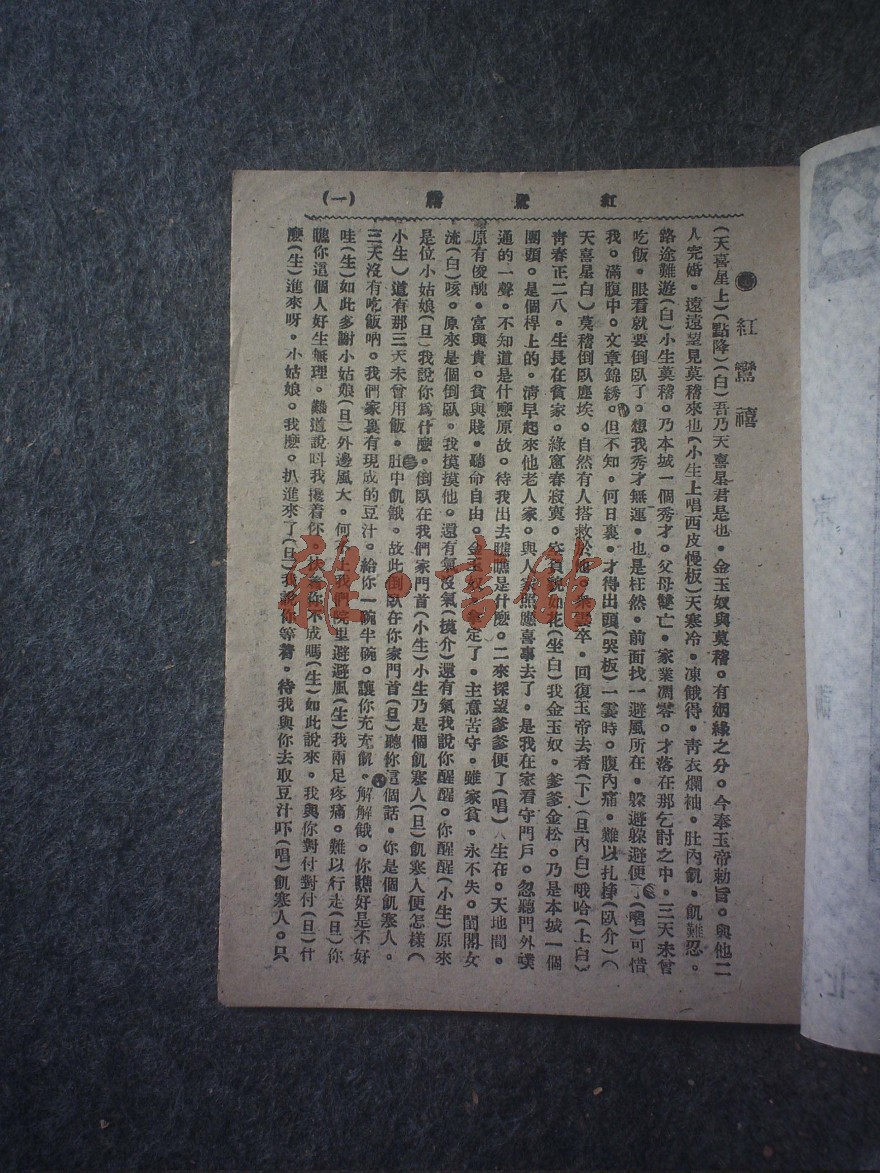 紅鸞禧 (一)
紅鸞禧
(天喜星上)(點降)(白)吾乃天喜星君是也。金玉奴與莫稽。有姻緣之分。今奉玉帝勅旨。與他二
人完婚。遠遠望見莫稽來也(小生上唱西皮慢板)天寒冷。凍餓得。靑衣爛袖。肚內飢。飢難忍。
路途難遊(白)小生莫稽。乃本城一個秀才。父母雙亡。家業凋零。才落在那乞討之中。三天未曾
吃飯。眼看就要倒臥了。想我秀才無運。也是枉然。前面找一避風所在。躱避躱避便了(唱)可惜
我。滿腹中。文章錦綉。但不知。何日裏。才得出頭(哭板)一霎時。腹內痛。難以扎掙(臥介)(
天喜星白)莫稽倒臥塵埃。自然有人搭救於他。衆雲卒。回復玉帝去者(下)(旦內白)哦哈(上白)
靑春正二八。生長在貧家。綠窻春寂寞。空負貌如花(坐白)我金玉奴。爹爹金松。乃是本城一個
團頭。是個桿上的。淸早起來他老人家。與人家照應喜事去了。是我在家看守門戶。忽聽門外噗
通的一聲。不知道是什麽原故。待我出去瞧瞧是什麽。二來探望爹爹便了(唱)人生在。天地間。
原有俊醜。富與貴。貧與賤。聽命自由。金玉奴。拿定了。主意苦守。雖家貧。永不失。閨閣女
流(白)咳。原來是個倒臥。我摸摸他。還有氣沒氣(摸介)還有氣我說你醒醒。你醒醒(小生)原來
是位小姑娘(旦)我說你爲什麽。倒臥在我們家門首(小生)小生乃是個飢寒人(旦)飢寒人便怎樣(
小生)道有那三天未曾用飯。肚中飢餓。故此倒臥在你家門首(旦)聽你這個話。你是個飢寒人。
三天沒有吃飯吶。我們家裏有現成的豆汁。給你一碗半碗。讓你充充飢。解解餓。你瞧好是不好
哇(生)如此多謝小姑娘(旦)外邊風大。何不上我們院里避避風(生)我兩足疼痛。難以行走(旦)你
瞧你這個人好生無理。難道說呌我攙着你。扶着你不成嗎(生)如此說來。我與你對付對付(旦)什
麽(生)進來呀。小姑娘。我麽。扒進來了(旦)我說你等着。待我與你去取豆汁吓(唱)飢寒人。只
雜·書館
京
北